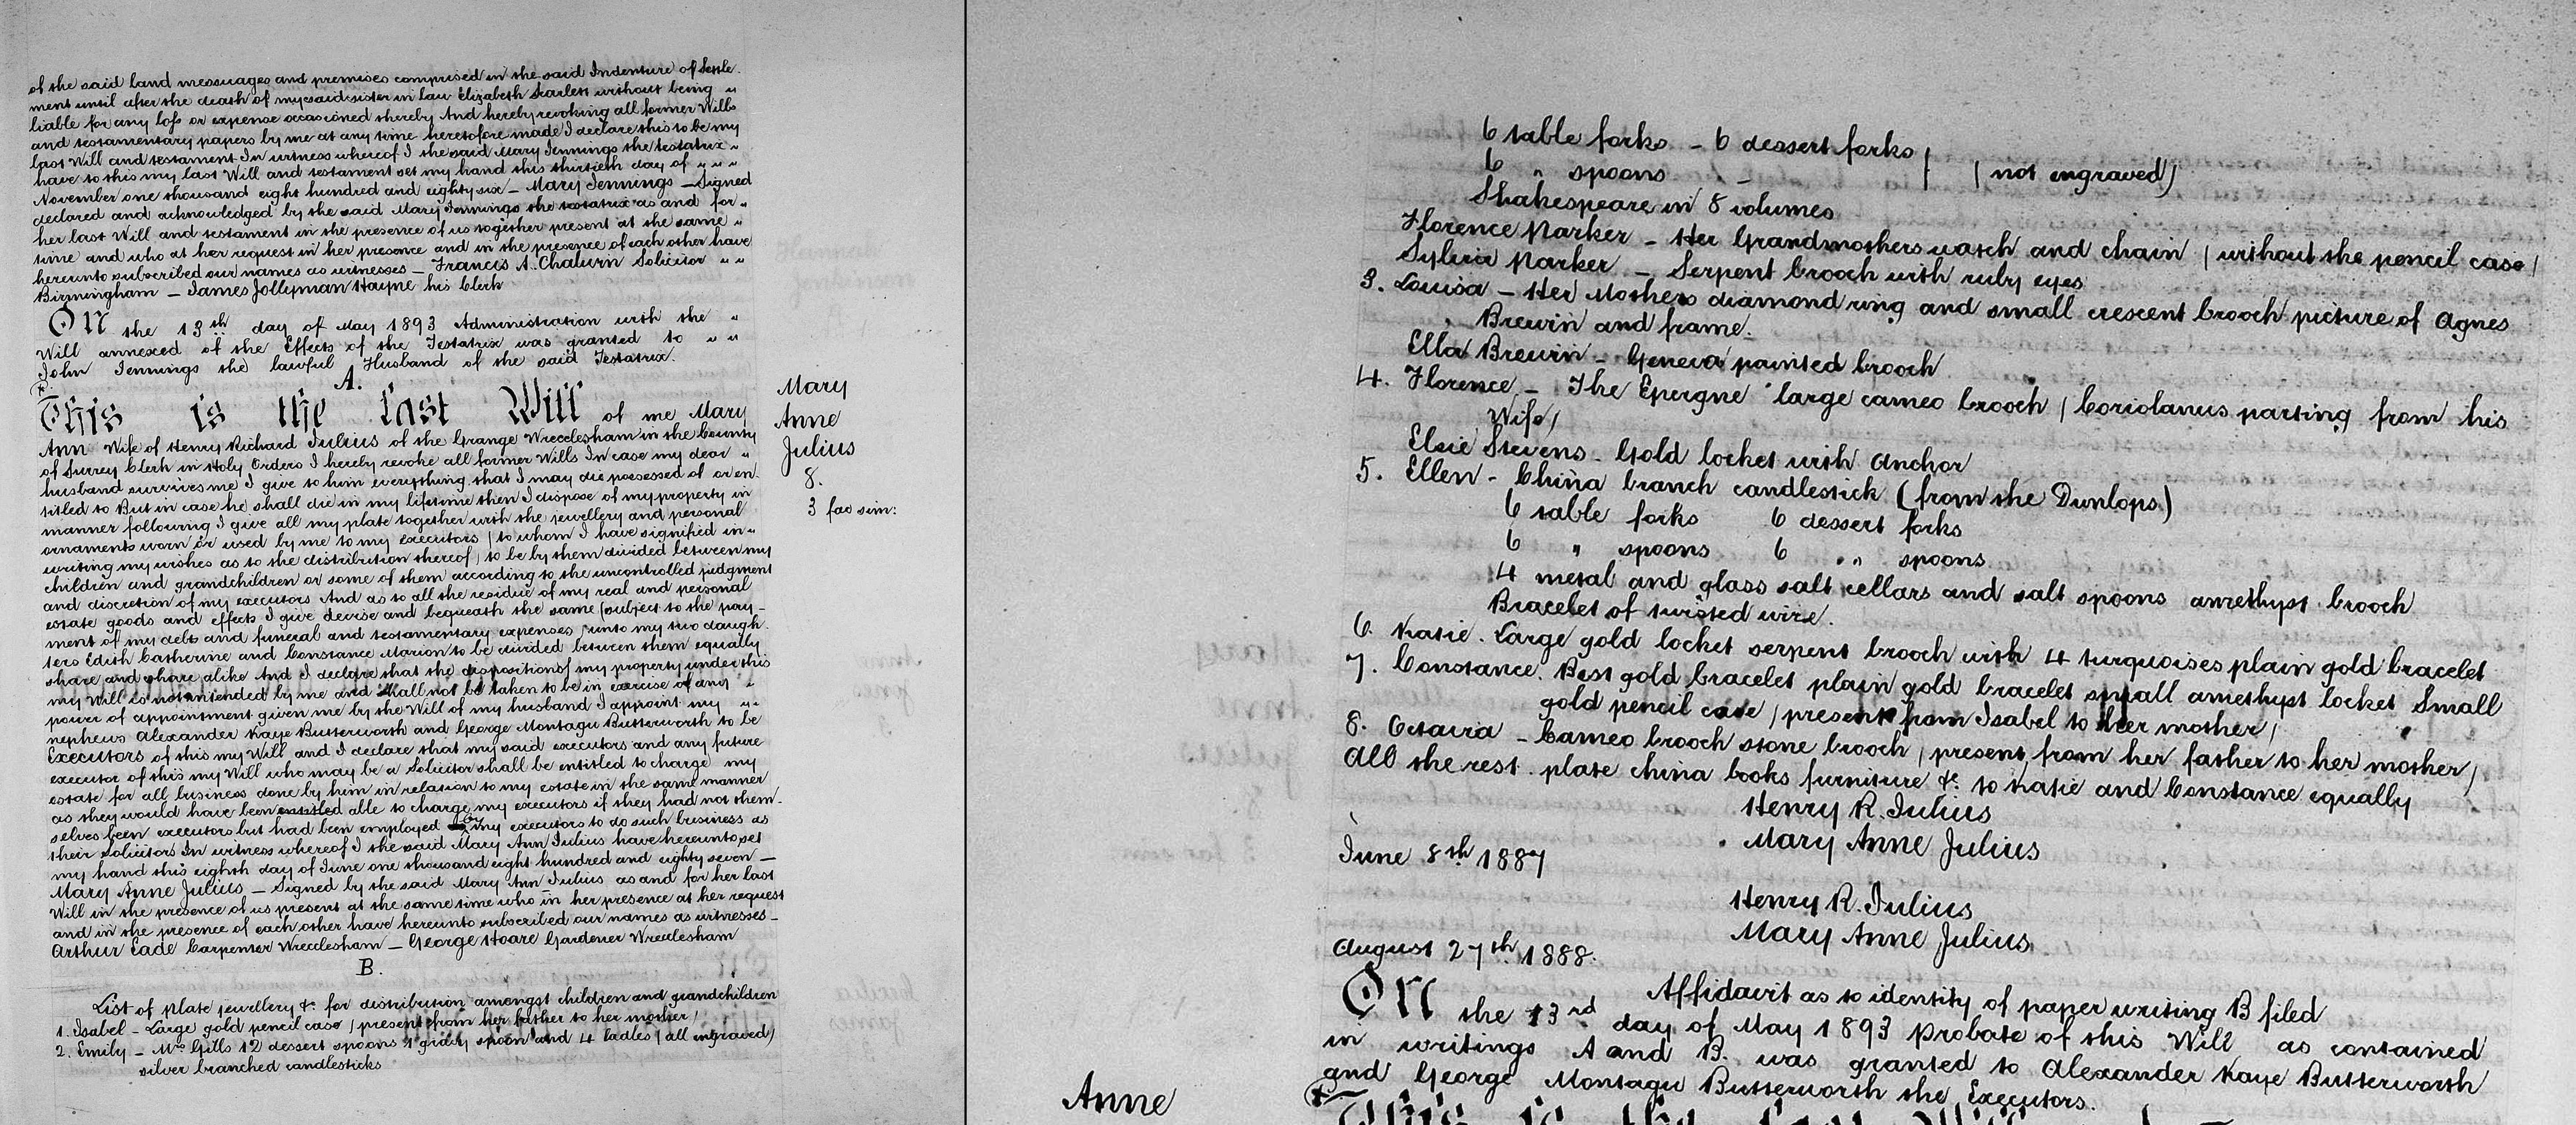 of the said land messuages and premises comprised in the said Indenture of Settle-
ment until after the death of my said sister in law Elizabeth Scarlett without being "
liable for any loss or expense occasioned thereby And hereby revoking all former Wills
and testamentary papers by me at any time heretofore made I declare this to be my
last Will and testament In witness whereof I the said Mary Jennings the testatrix "
have to this my last Will and testament set my hand this thirtieth day of " " "
November one thousand eight hundred and eighty six – Mary Jennings – Signed
declared and acknowledged by the said Mary Jennings the testatrix as and for "
her last Will and testament in the presence of us together present at the same "
time and who at her request in her presence and in the presence of each other have
hereunto subscribed our names as witnesses – Francis A. Solicitor " "
Birmingham – James Jollyman Hayne his Clerk
On the 13th day of May 1893 Administration with the "
Will annexed of the Effects of the Testatrix was granted to " "
John Jennings the lawful Husband of the said Testatrix.
A.
This is the last Will of me Mary
Ann Wife of Henry Richard Julius of the Grange Wrecclesham in the County
of Surrey Clerk in Holy Orders I hereby revoke all former Wills In case my dear "
husband survives me I give to him everything that I may die possessed of or en-
titled to But in case he shall die in my lifetime then I dispose of my property in
manner following I give all my plate together with the jewellery and personal
ornaments worn or used by me to my executors (to whom I have signified in "
writing my wishes as to the distribution thereof) to be by them divided between my
children and grandchildren or some of them according to the uncontrolled judgment
and discretion of my executors And as to all the residue of my real and personal
estate goods and effects I give devise and bequeath the same (subject to the pay-
ment of my debts and funeral and testamentary expenses) unto my two daugh-
ters Edith Catherine and Constance Marion to be divided between them equally
share and share alike And I declare that the disposition of my property under this
my Will is not intended by me and shall not be taken to be in exercise of any "
power of appointment given me by the Will of my husband I appoint my " "
nephews Alexander Kaye Butterworth and George Montagu Butterworth to be
Executors of this my Will and I declare that my said executors and any future
executor of this my Will who may be a Solicitor shall be entitled to charge my
estate for all business done by him in relation to my estate in the same manner
as they would have been entitled able to charge my executors if they had not them-
selves been executors but had been employed by my executors to do such business as
their Solicitors In witness whereof I the said Mary Ann Julius have hereunto set
my hand this eighth day of June one thousand eight hundred and eighty seven –
Mary Anne Julius – Signed by the said Mary Ann Julius as and for her last
Will in the presence of us present at the same time who in her presence at her request
and in the presence of each other have hereunto subscribed our names as witnesses –
Arthur Eade Carpenter Wrecclesham – George Hoare Gardener Wrecclesham
B.
List of plate jewellery &c for distribution amongst children and grandchildren
1. Isabel – Large gold pencil case (present from her father to her mother)
2. Emily – Mrs Gills 12 dessert spoons 1 gravy spoon and 4 ladles (all engraved)
silver branched candlesticks
Mary
Anne
Julius
8.
3 fac sim:
6 table forks – 6 dessert forks
6 " spoons – (not engraved)
Shakespeare in 8 volumes
Florence Parker – Her Grandmothers watch and chain (without the pencil case)
Sylvia Parker – Serpent brooch with ruby eyes
3. Louisa – Her Mothers diamond ring and small crescent brooch picture of Agnes
Brewin and frame.
Ella Brewin – Geneva painted brooch
4. Florence – The Epergne large cameo brooch (Coriolanus parting from his
Wife)
Elsie Stevens – Gold locket with Anchor
5. Ellen – China branch candlestick (from the Dunlops)
6 table forks 6 dessert forks
6 " spoons 6 " spoons
4 metal and glass salt cellars and salt spoons amethyst brooch
Bracelet of twisted wire.
6. Katie. Large gold locket serpent brooch with 4 turquoises plain gold bracelet
7. Constance. Best gold bracelet plain gold bracelet small amethyst locket Small
gold pencil case (present from Isabel to her mother)
8. Octavia – Cameo brooch stone brooch (present from her father to her mother)
All the rest. plate china books furniture &c to Katie and Constance equally
Henry R. Julius
Mary Anne Julius
June 8th 1887
Henry R. Julius
Mary Anne Julius
August 27th 1888.
Affidavit as to identity of paper writing B filed
On the 13rd day of May 1893 Probate of this Will as contained
in writings A and B. was granted to Alexander Kaye Butterworth
and George Montagu Butterworth the Executors.
Anne
This is the last Will